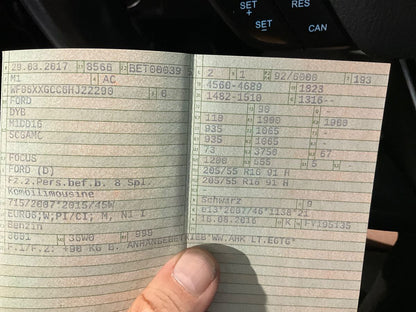 SET
+
RES
SET
-
CAN
29.03.2017 8566 BET00039 5
M1 AC
WF05XXGCC5HJ22290 6
FORD
DYB
MIDD1G
5CGAMC
FOCUS
FORD (D)
Fz.z.Pers.bef.b. 8 Spl.
Kombilimousine
715/2007*2015/45W
EURO6;W;PI/CI; M, N1 I
Benzin
0001 36W0 999
F.1/F.2: +90 KG B. ANHÄNGEBETRIEB*WW.AHK LT.EGTG*
2 1 92/6000 193
4560-4689 1823
1482-1510 1316--
- 90 -
110 1900 1900
935 1065 -
935 1065 -
73 3750 67
1200 635 5
205/55 R16 91 H
205/55 R16 91 H
Schwarz 9
e13*2007/46*1138*21
16.08.2016 K FV195135